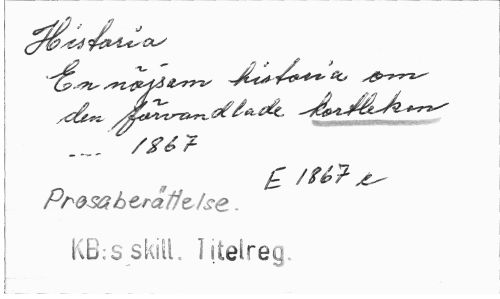 Historia
En nöjsam historia om
den förvandlade kortleken
--- 1867
E 1867 e
Prosaberättelse.
KB:s skill. Titelreg.